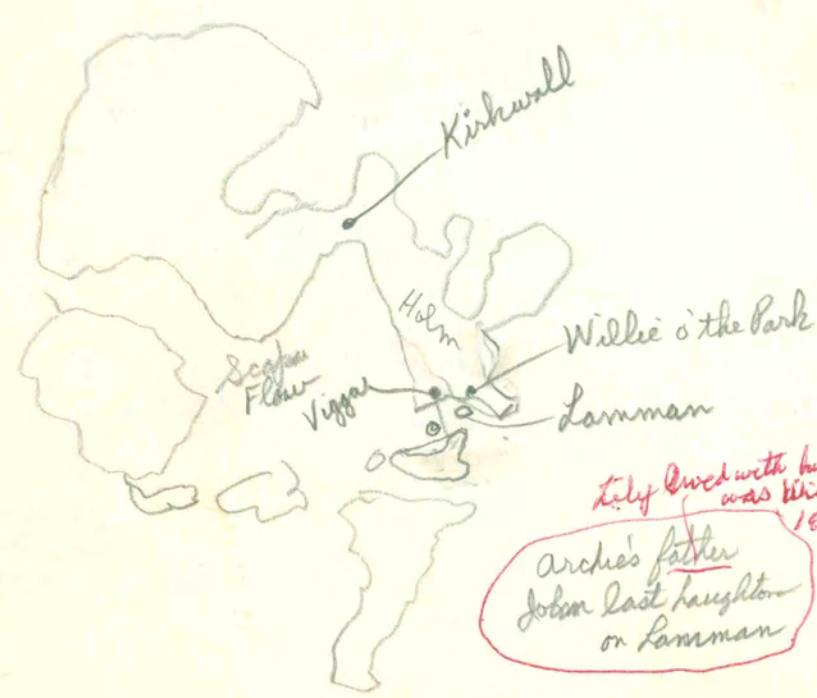 Kirkwall
Holm
Willie o' the Park
Scapa
Flow
Viggar
Lamman
Lily lived with
was
archie's father
John last Laughton
on Lamman